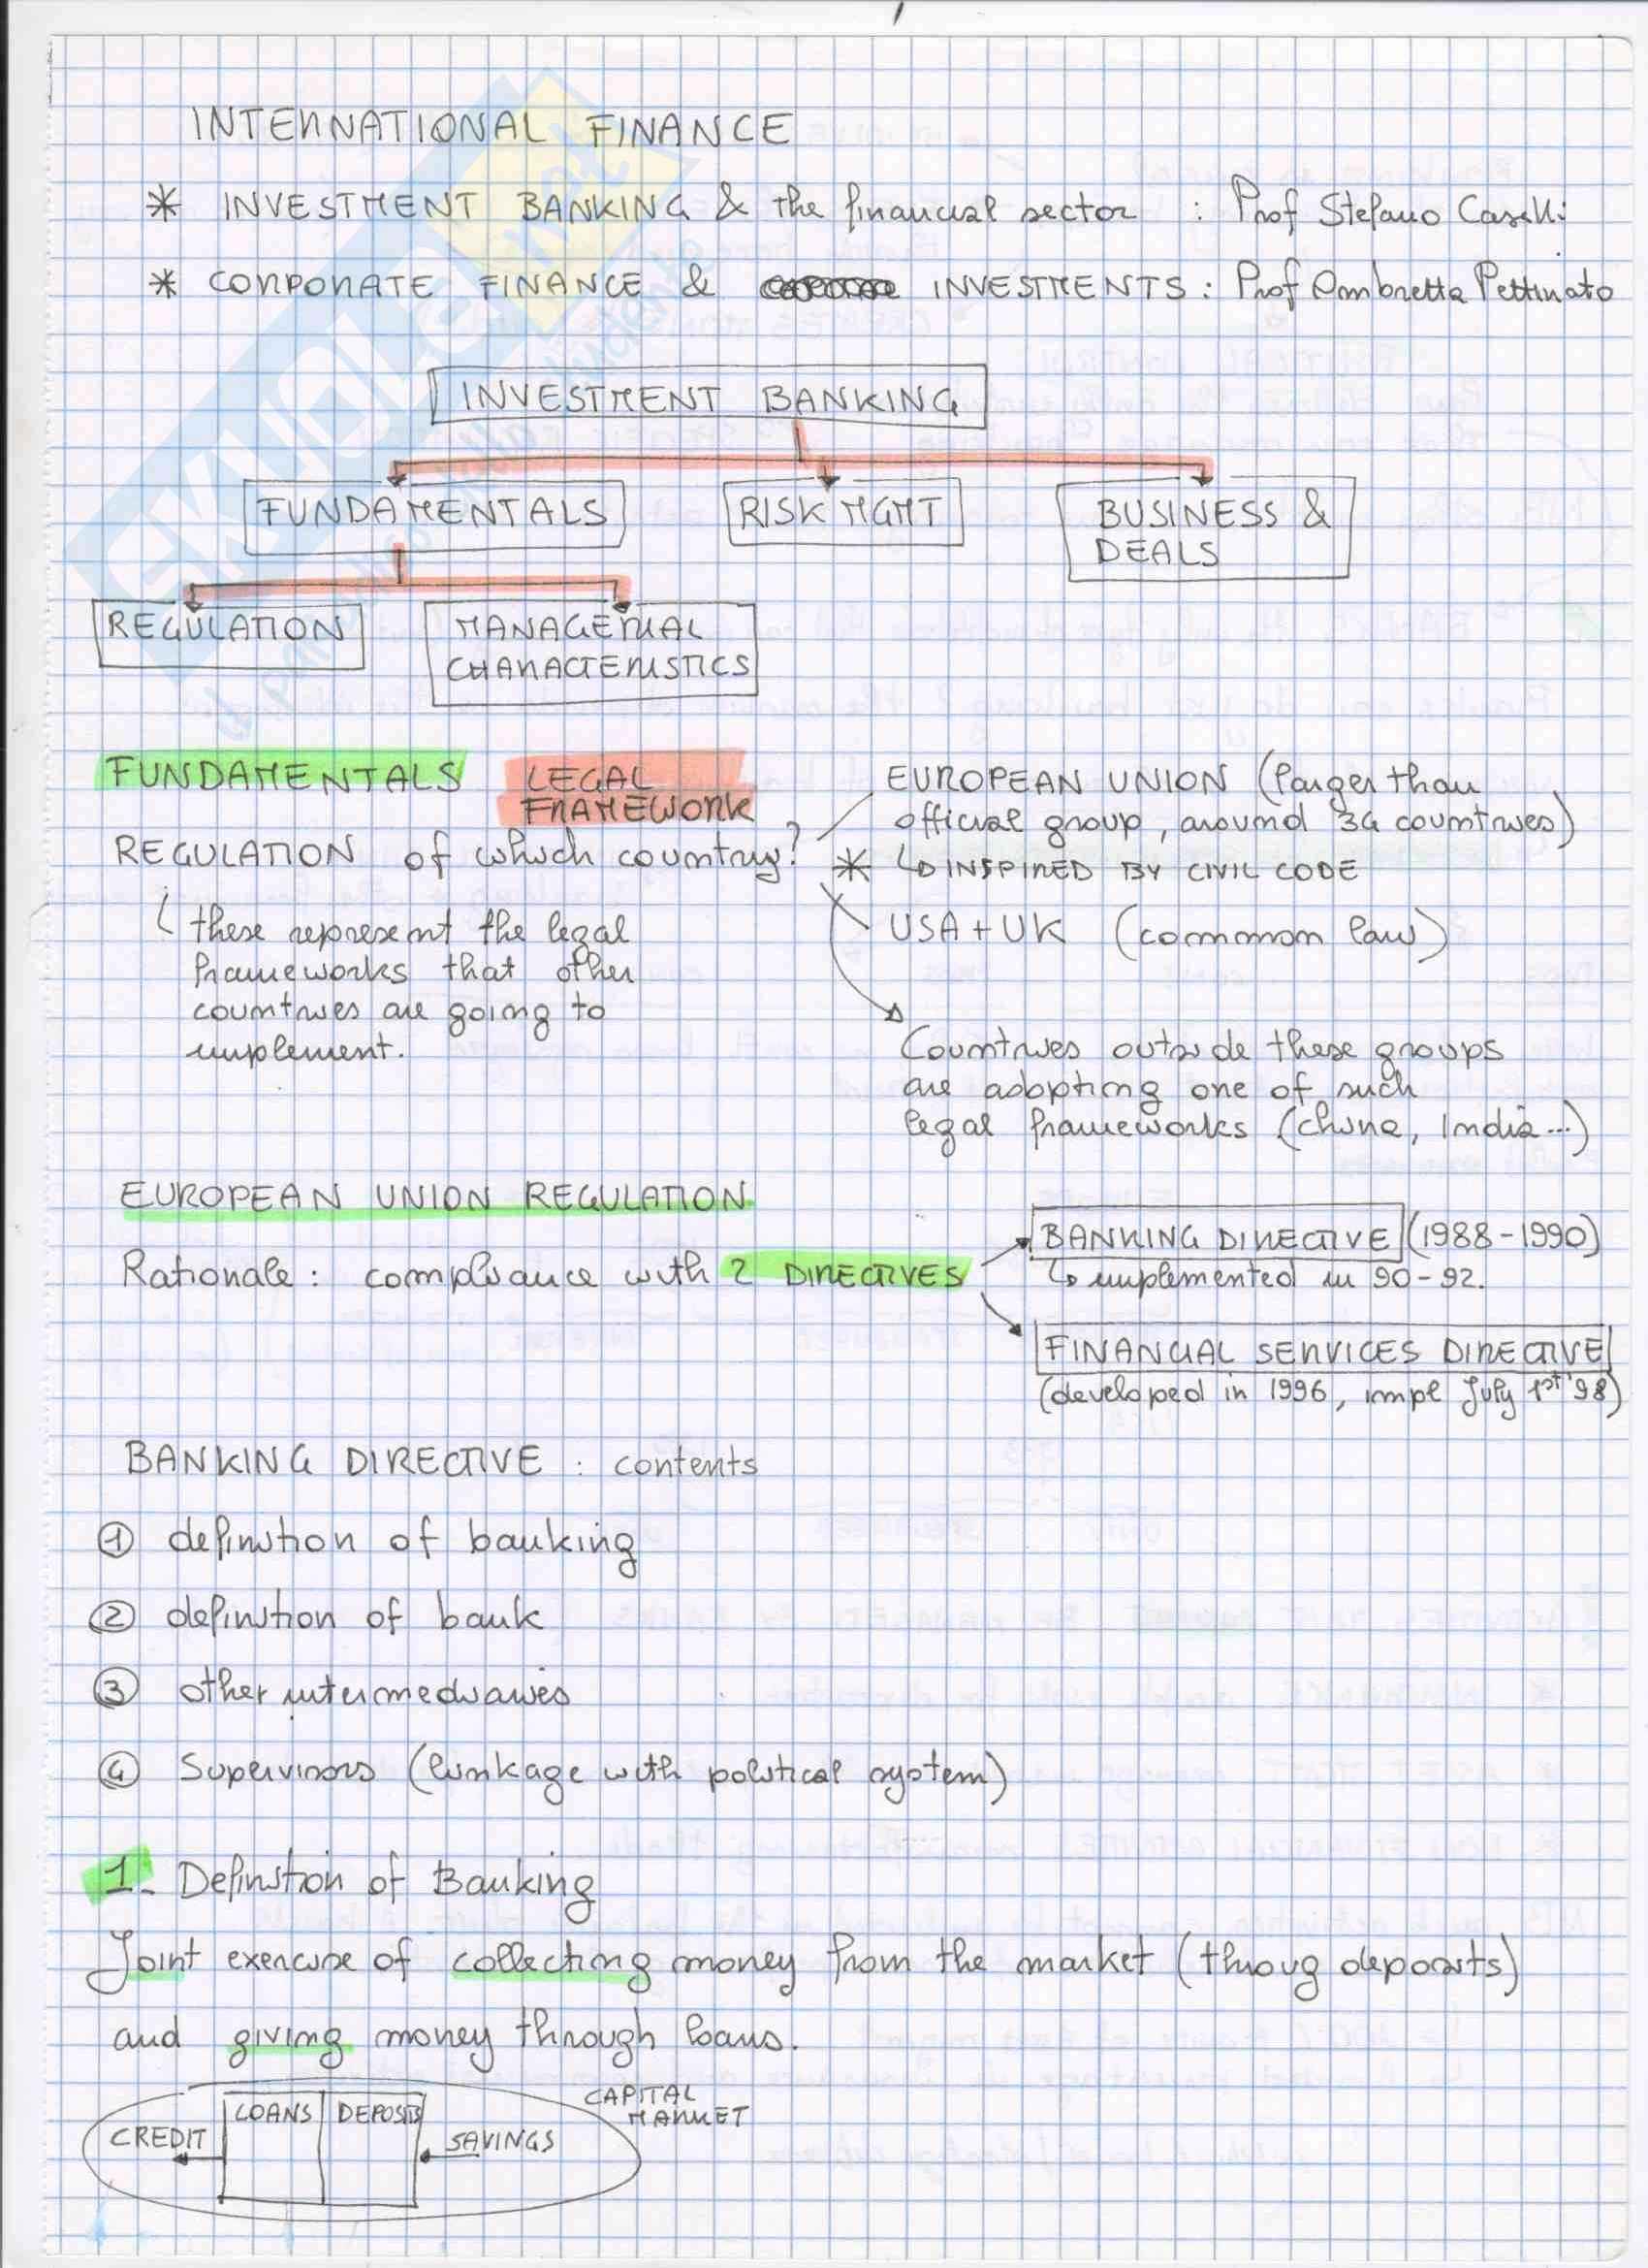 INTERNATIONAL FINANCE
* INVESTMENT BANKING & the financial sector : Prof Stefano Caselli
* CORPORATE FINANCE & INVESTMENTS : Prof Ombretta Pettinato
INVESTMENT BANKING
FUNDAMENTALS
RISK MGMT
BUSINESS &
DEALS
REGULATION
MANAGERIAL
CHARACTERISTICS
FUNDAMENTALS
LEGAL
FRAMEWORK
REGULATION of which country?
these represent the legal
frameworks that other
countries are going to
implement.
EUROPEAN UNION (larger than
official group, around 34 countries)
* ↳ INSPIRED BY CIVIL CODE
USA + UK (common law)
Countries outside these groups
are adopting one of such
legal frameworks (China, India...)
EUROPEAN UNION REGULATION
Rationale : compliance with 2 DIRECTIVES
BANKING DIRECTIVE (1988-1990)
↳ implemented in 90-92.
FINANCIAL SERVICES DIRECTIVE
(developed in 1996, impl July 1st '98)
BANKING DIRECTIVE : contents
① definition of banking
② definition of bank
③ other intermediaries
④ Supervisors (linkage with political system)
1. Definition of Banking
Joint exercise of collecting money from the market (throug deposits)
and giving money through loans.
CREDIT
LOANS
DEPOSITS
SAVINGS
CAPITAL
MARKET